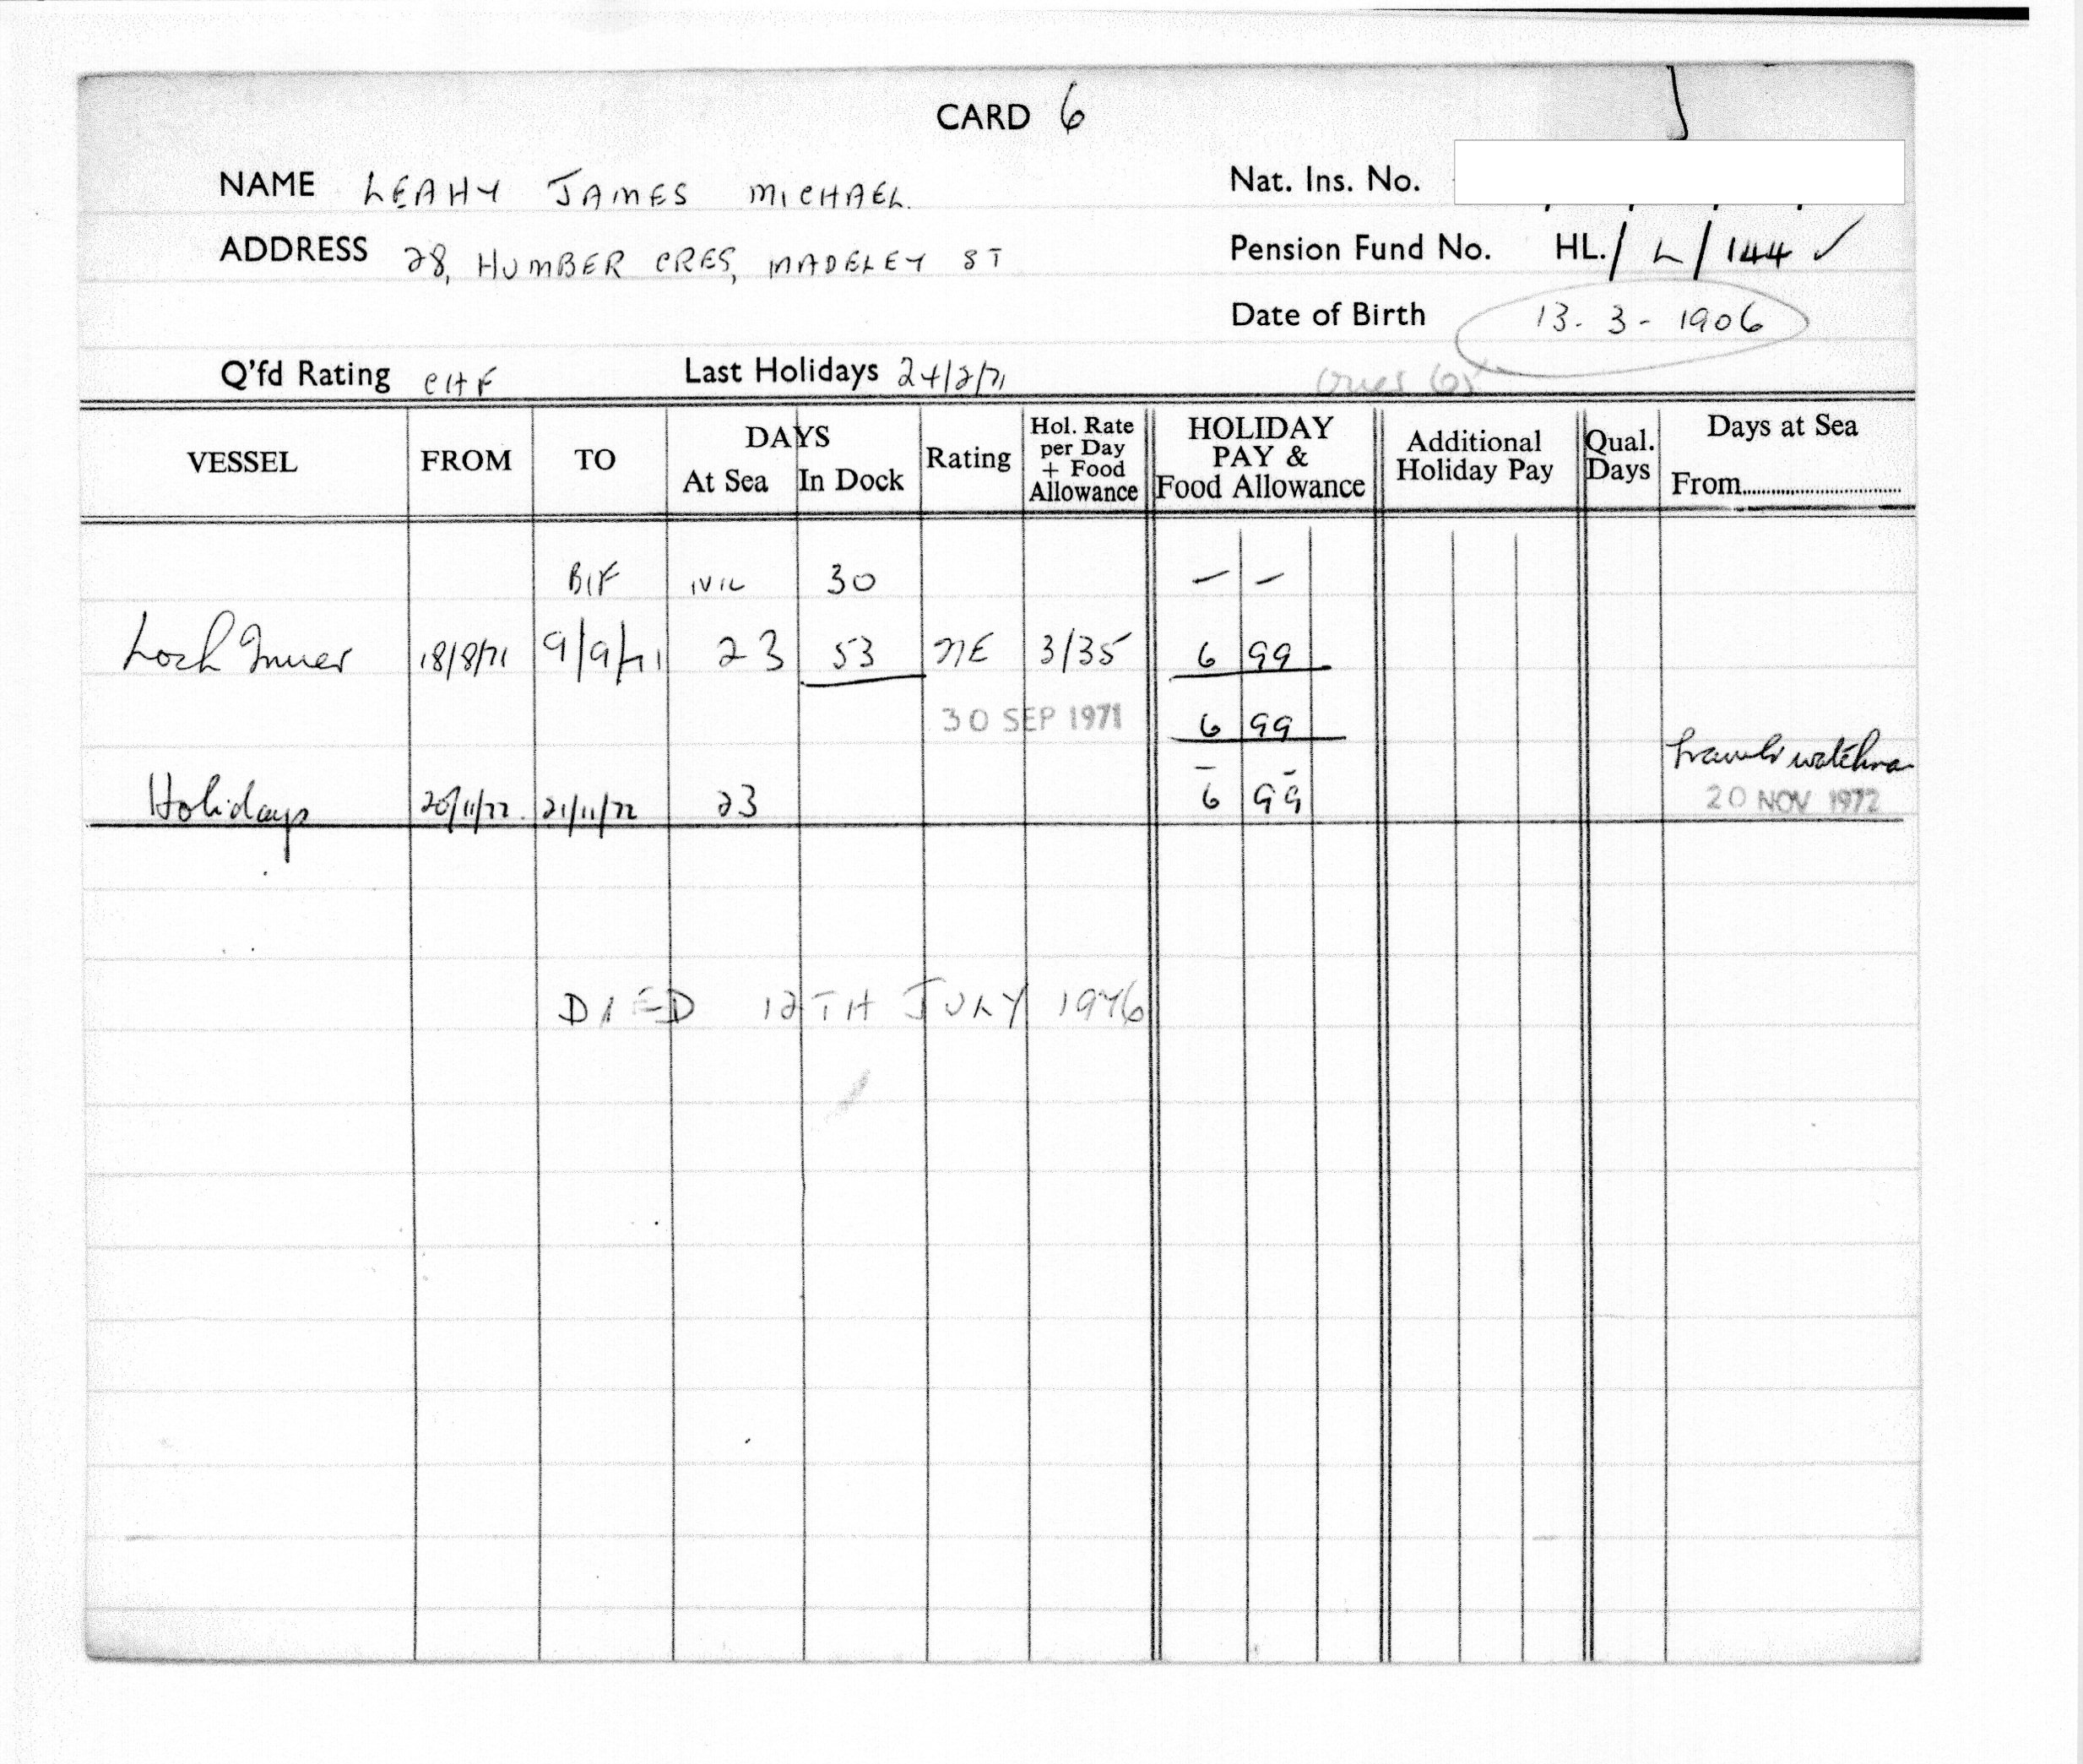 CARD 6
NAME LEAHY JAMES MICHAEL.
Nat. Ins. No.
ADDRESS 28, HUMBER CRES, MADELEY ST
Pension Fund No. HL./ L / 144 ✓
Date of Birth 13-3-1906
Q'fd Rating CHF Last Holidays 24/2/71 Over 65
VESSEL FROM TO DAYS At Sea In Dock Rating Hol. Rate per Day + Food Allowance HOLIDAY PAY & Food Allowance Additional Holiday Pay Qual. Days Days at Sea From
B/F NIL 30 — —
Loch Inver 18/8/71 9/9/71 23 53 NE 3/35 6 99
30 SEP 1971 6 99
Holidays 20/11/72 21/11/72 23 6 99 Trawler watchman
20 NOV 1972
DIED 12TH JULY 1976